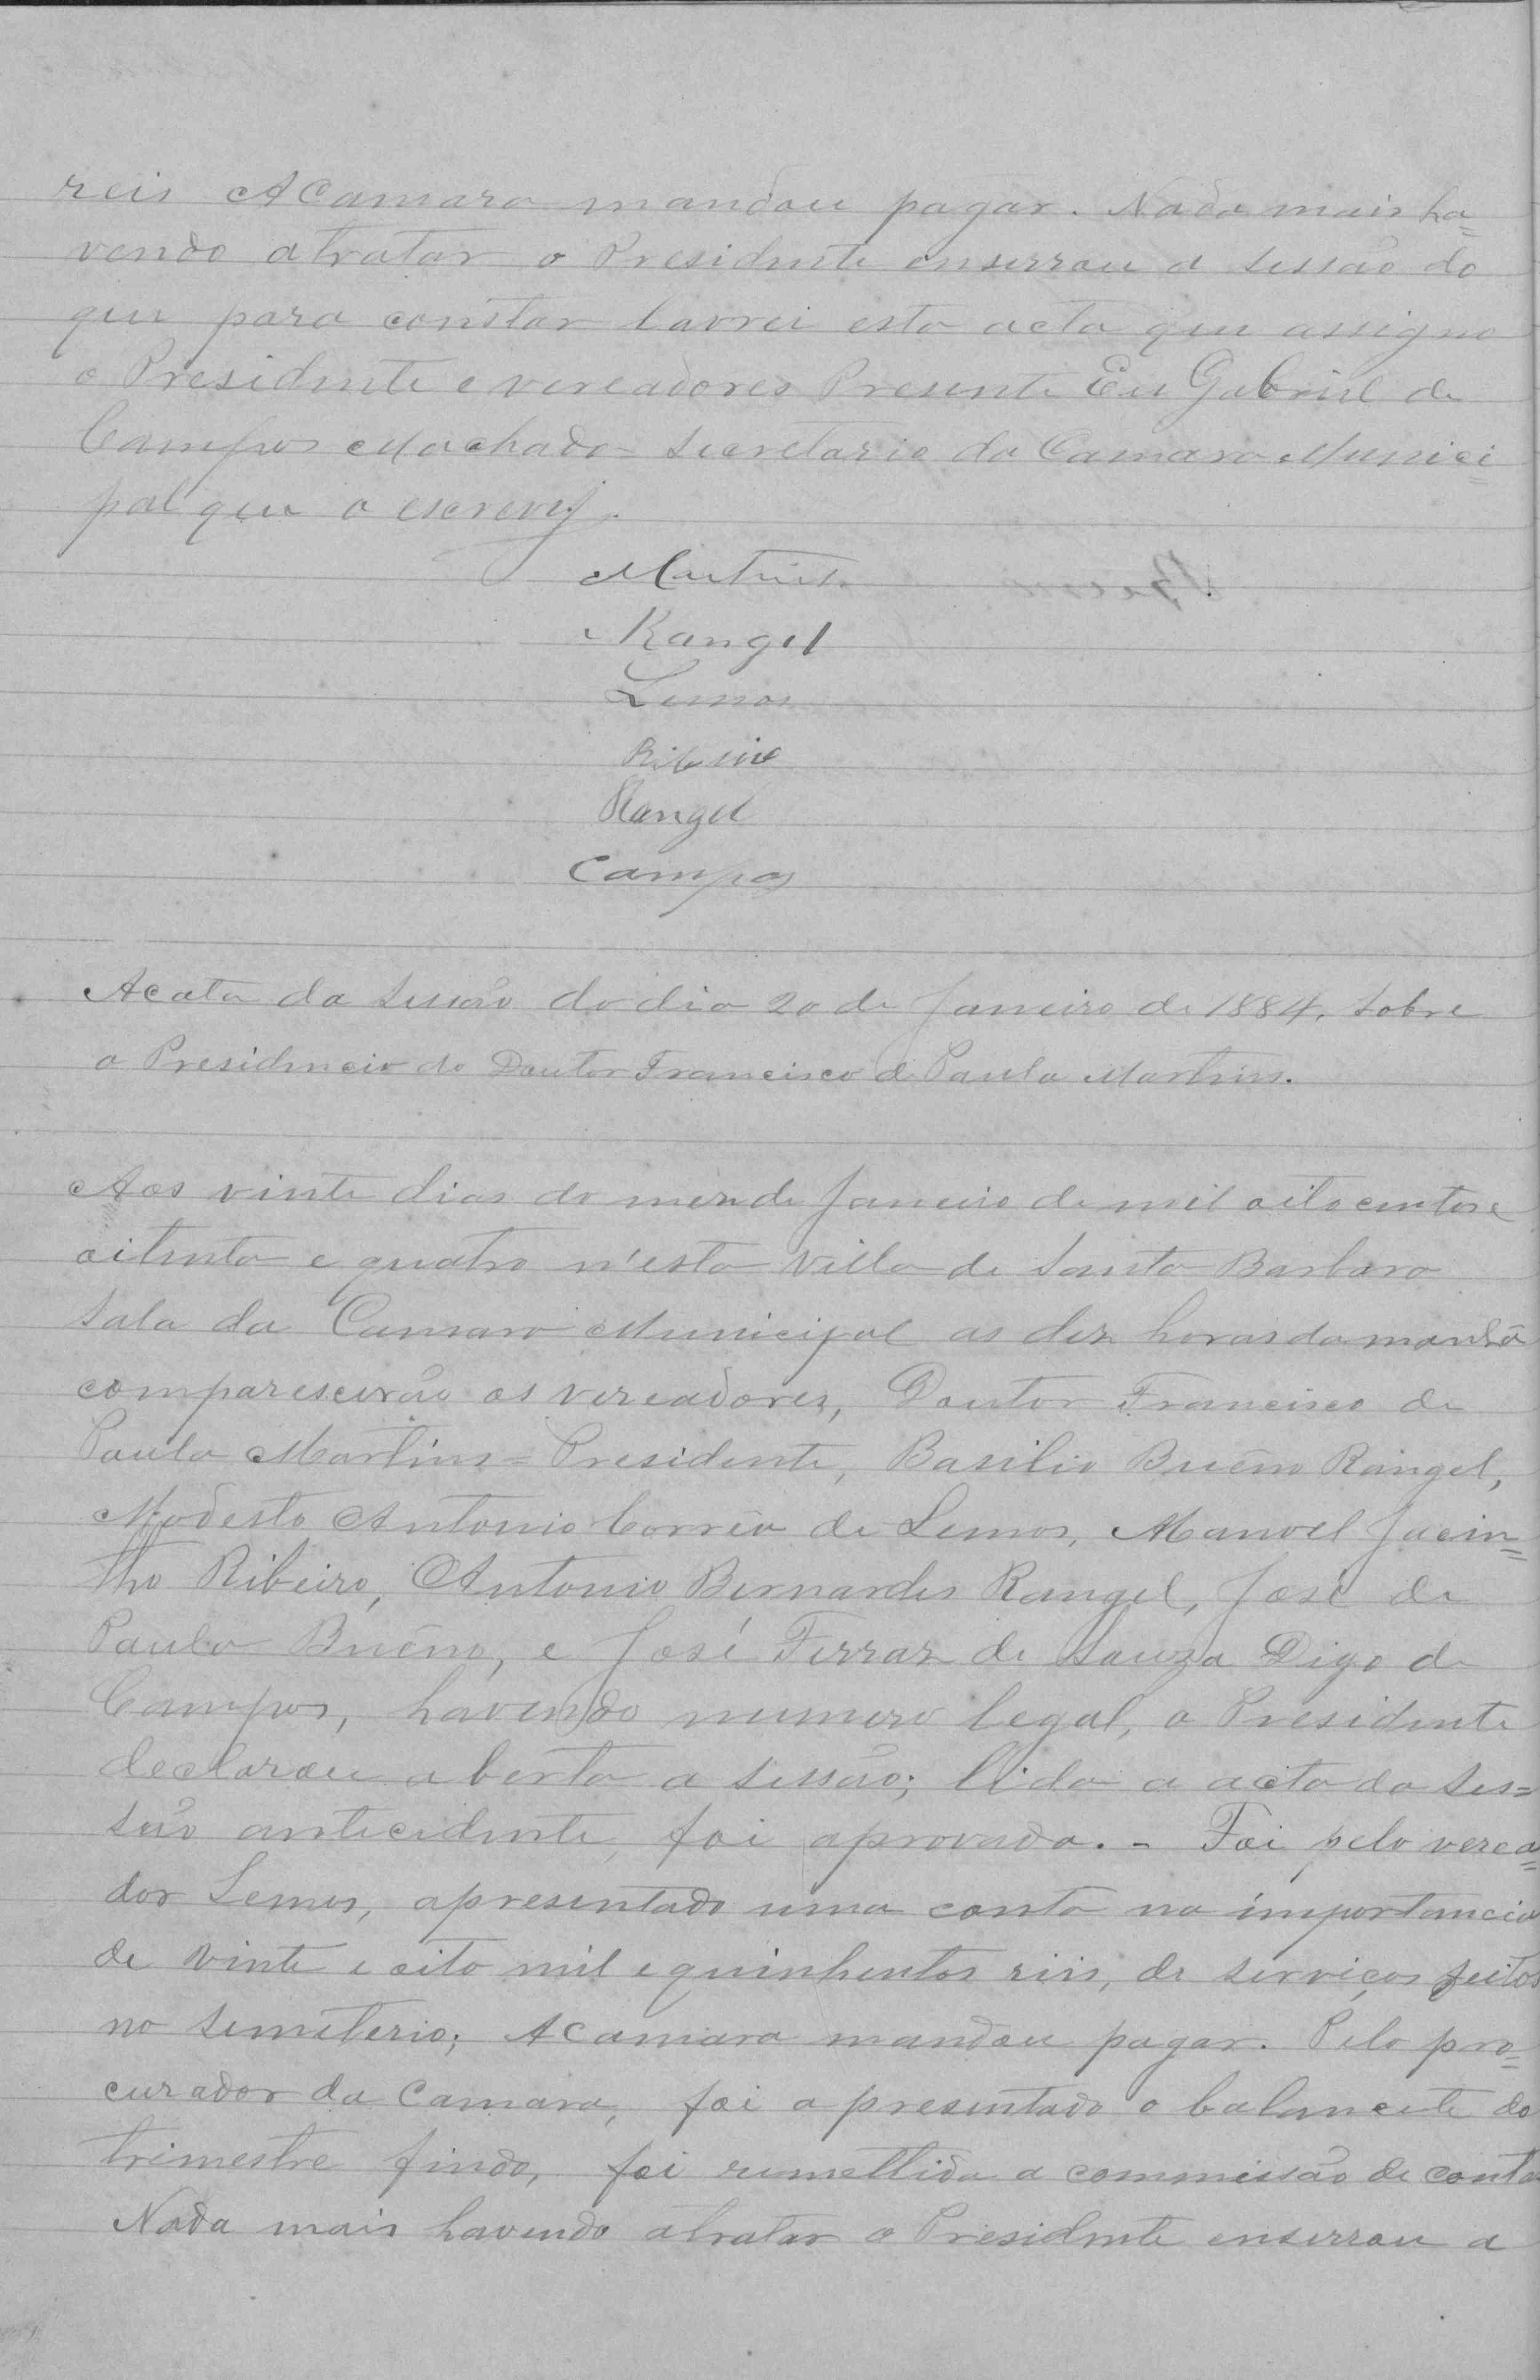 reis A Camara mandou pagar. Nada mais ha=
vendo atratar o Presidente enserrou a sessão do
que para constar lavrei esta acta que assigno
o Presidente e vereadores Presente Eu Gabriel de
Campos Machado Secretario da Camara Munici=
pal que o escrevy.
Martins
Rangel
Lemos
Ribeiro
Rangel
Campos
Acata da Sessão do dia 20 de Janeiro de 1884, sobre
a Presidencia do Doutor Francisco de Paula Martins.
Aos vinte dias do mez de Janeiro de mil oito centos e
oitenta e quatro n'esta Villa de Santa Barbara
Sala da Camara Municipal as dez horas da manhã
comparescerão os vereadores, Doutor Francisco de
Paula Martins = Presidente, Basilio Buêno Rangel,
Modesto Antonio Corrêa de Lemos, Manoel Jacin=
tho Ribeiro, Antonio Bernardes Rangel, José de
Paula Buêno, e José Ferraz de Souza Digo de
Campos, havendo numero legal, o Presidente
declarou aberta a sessão; lida a acta da Ses=
são antecidente, foi aprovada. - Foi pelo verea=
dor Lemos, apresentado uma conta na importancia
de vinte e oito mil e quinhentos reis, de serviços feitos
no Semeterio; A Camara mandou pagar. Pelo pro=
curador da Camara, foi apresentado o balancete do
trimestre findo, foi remettida a commissão de conta
Nada mais havendo atratar o Presidente enserrou a